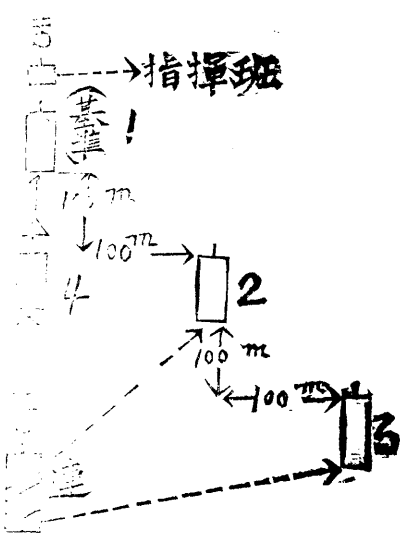 指揮班
(基準)
1
100m
100m
4
2
100m
100m
3